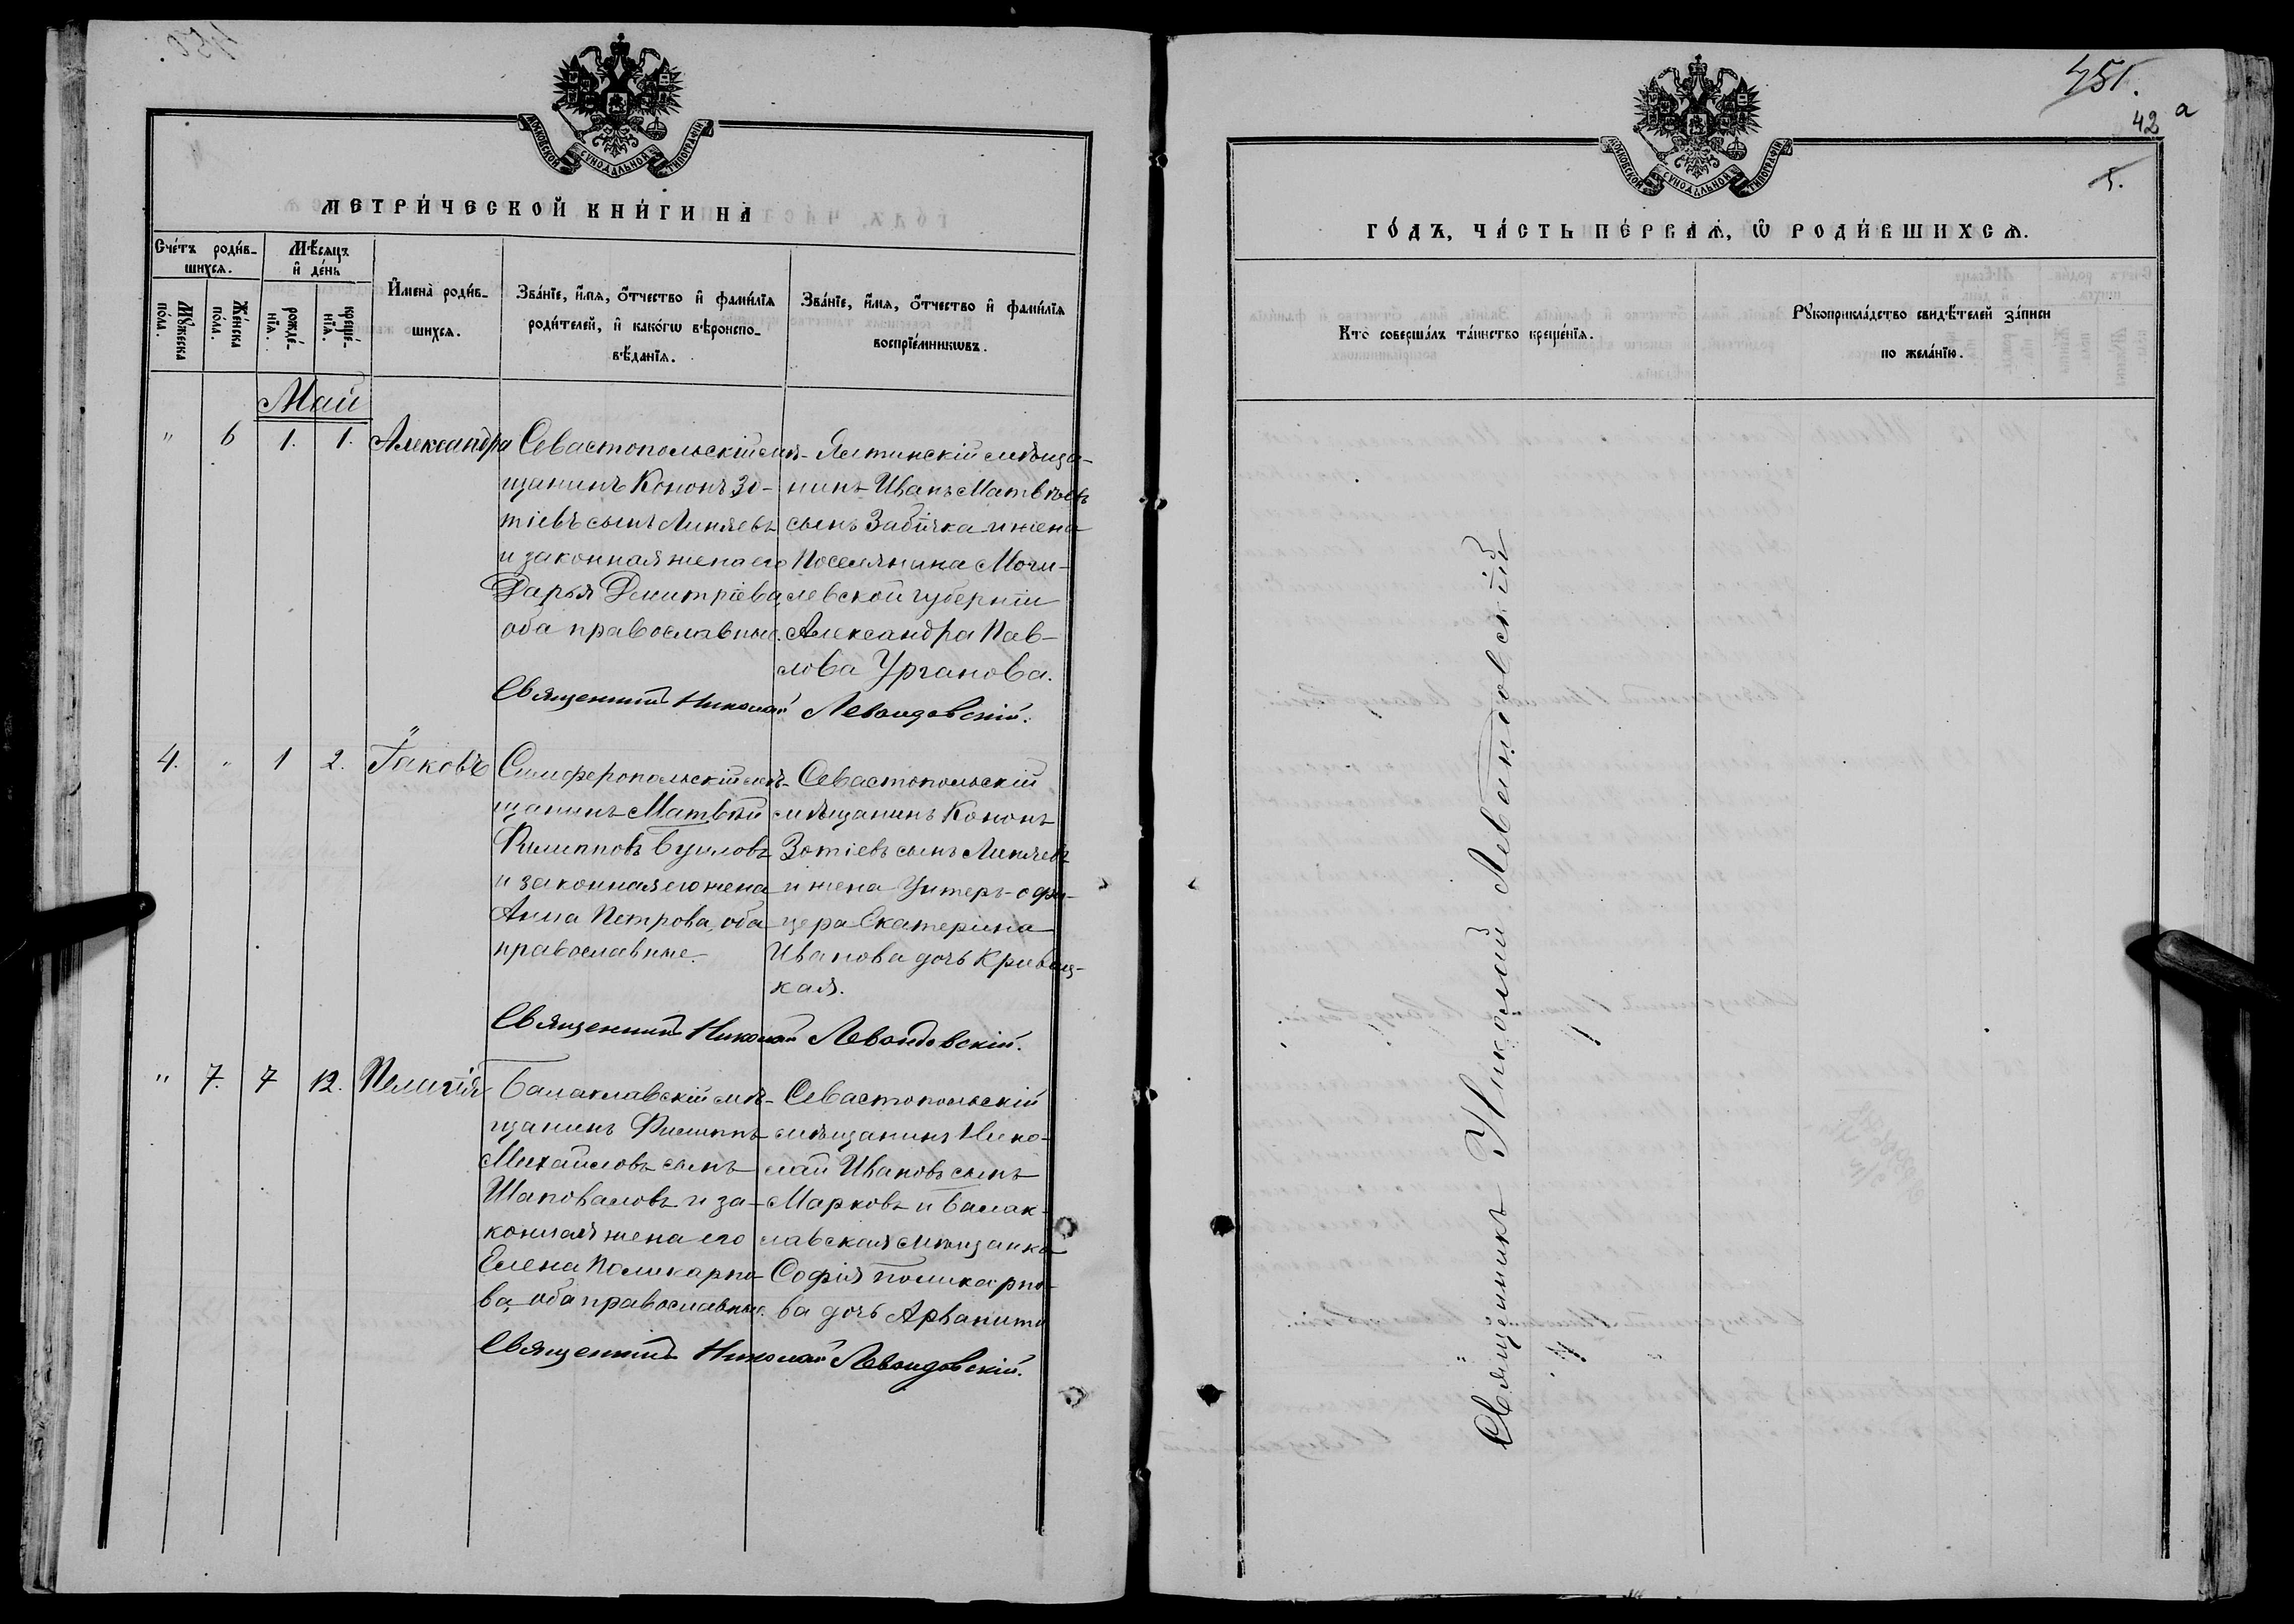 МОСКОВСКОЙ СУНОДАЛЬНОЙ ТИПОГРАФІИ
МЕТРИ́ЧЕСКОЙ КНИ́ГИ НА
Сче́тъ роди́в-
шихся.
Мѣ́сяцъ
и҆ де́нь
Мꙋ́жеска
по́ла.
Же́нска
по́ла.
рожде́-
нїѧ.
креще́-
нїѧ.
И҆мена̀ роди́в-
шихсѧ.
Зва́нїе, и҆́мѧ, ѻ҆́тчество и҆ фами́лїѧ
роди́телей, и҆ како́гѡ вѣроиспо-
вѣ́данїѧ.
Зва́нїе, и҆́мѧ, ѻ҆́тчество и҆ фами́лїѧ
воспрїе́мникѡвъ.
Май
" 6 1. 1. Александра
Севастопольскій мѣ-
щанинъ Кононъ Зо-
тіевъ сынъ Линяевъ
и законная жена его
Дарья Димитріева,
оба православные.
Ялтинскій мѣща-
нинъ Иванъ Матвѣевъ
сынъ Забіяка и жена
Поселянина Моги-
левской губерніи
Александра Пав-
лова Урганова.
Священникъ Николай Левандовскій.
4. " 1 2. Іаковъ
Симферопольскій мѣ-
щанинъ Матвѣй
Филипповъ Буиловъ
и законная его жена
Анна Петрова, оба
православные.
Севастопольскій
мѣщанинъ Кононъ
Зотіевъ сынъ Линяевъ
и жена Унтеръ-офи-
цера Екатерина
Иванова дочь Кривец-
кая.
Священникъ Николай Левандовскій.
" 7. 7 12. Пелагія
Балаклавскій мѣ-
щанинъ Филиппъ
Михайловъ сынъ
Шаповаловъ и за-
конная жена его
Елена Поликарпо-
ва, оба православные.
Севастопольскій
мѣщанинъ Нико-
лай Ивановъ сынъ
Марковъ и Балак-
лавская мѣщанка
Софія Поликарпо-
ва дочь Арванити
Священникъ Николай Левандовскій.
451.
42 а
5.
МОСКОВСКОЙ СУНОДАЛЬНОЙ ТИПОГРАФІИ
ГО́ДЪ, ЧА́СТЬ ПЕ́РВАѦ, Ѡ҆ РОДИ́ВШИХСѦ.
Кто̀ соверша́лъ та́инство креще́нїѧ.
Рꙋкоприкла́дство свидѣ́телей за́писи
по жела́нїю.
Священникъ Николай Левандовскій